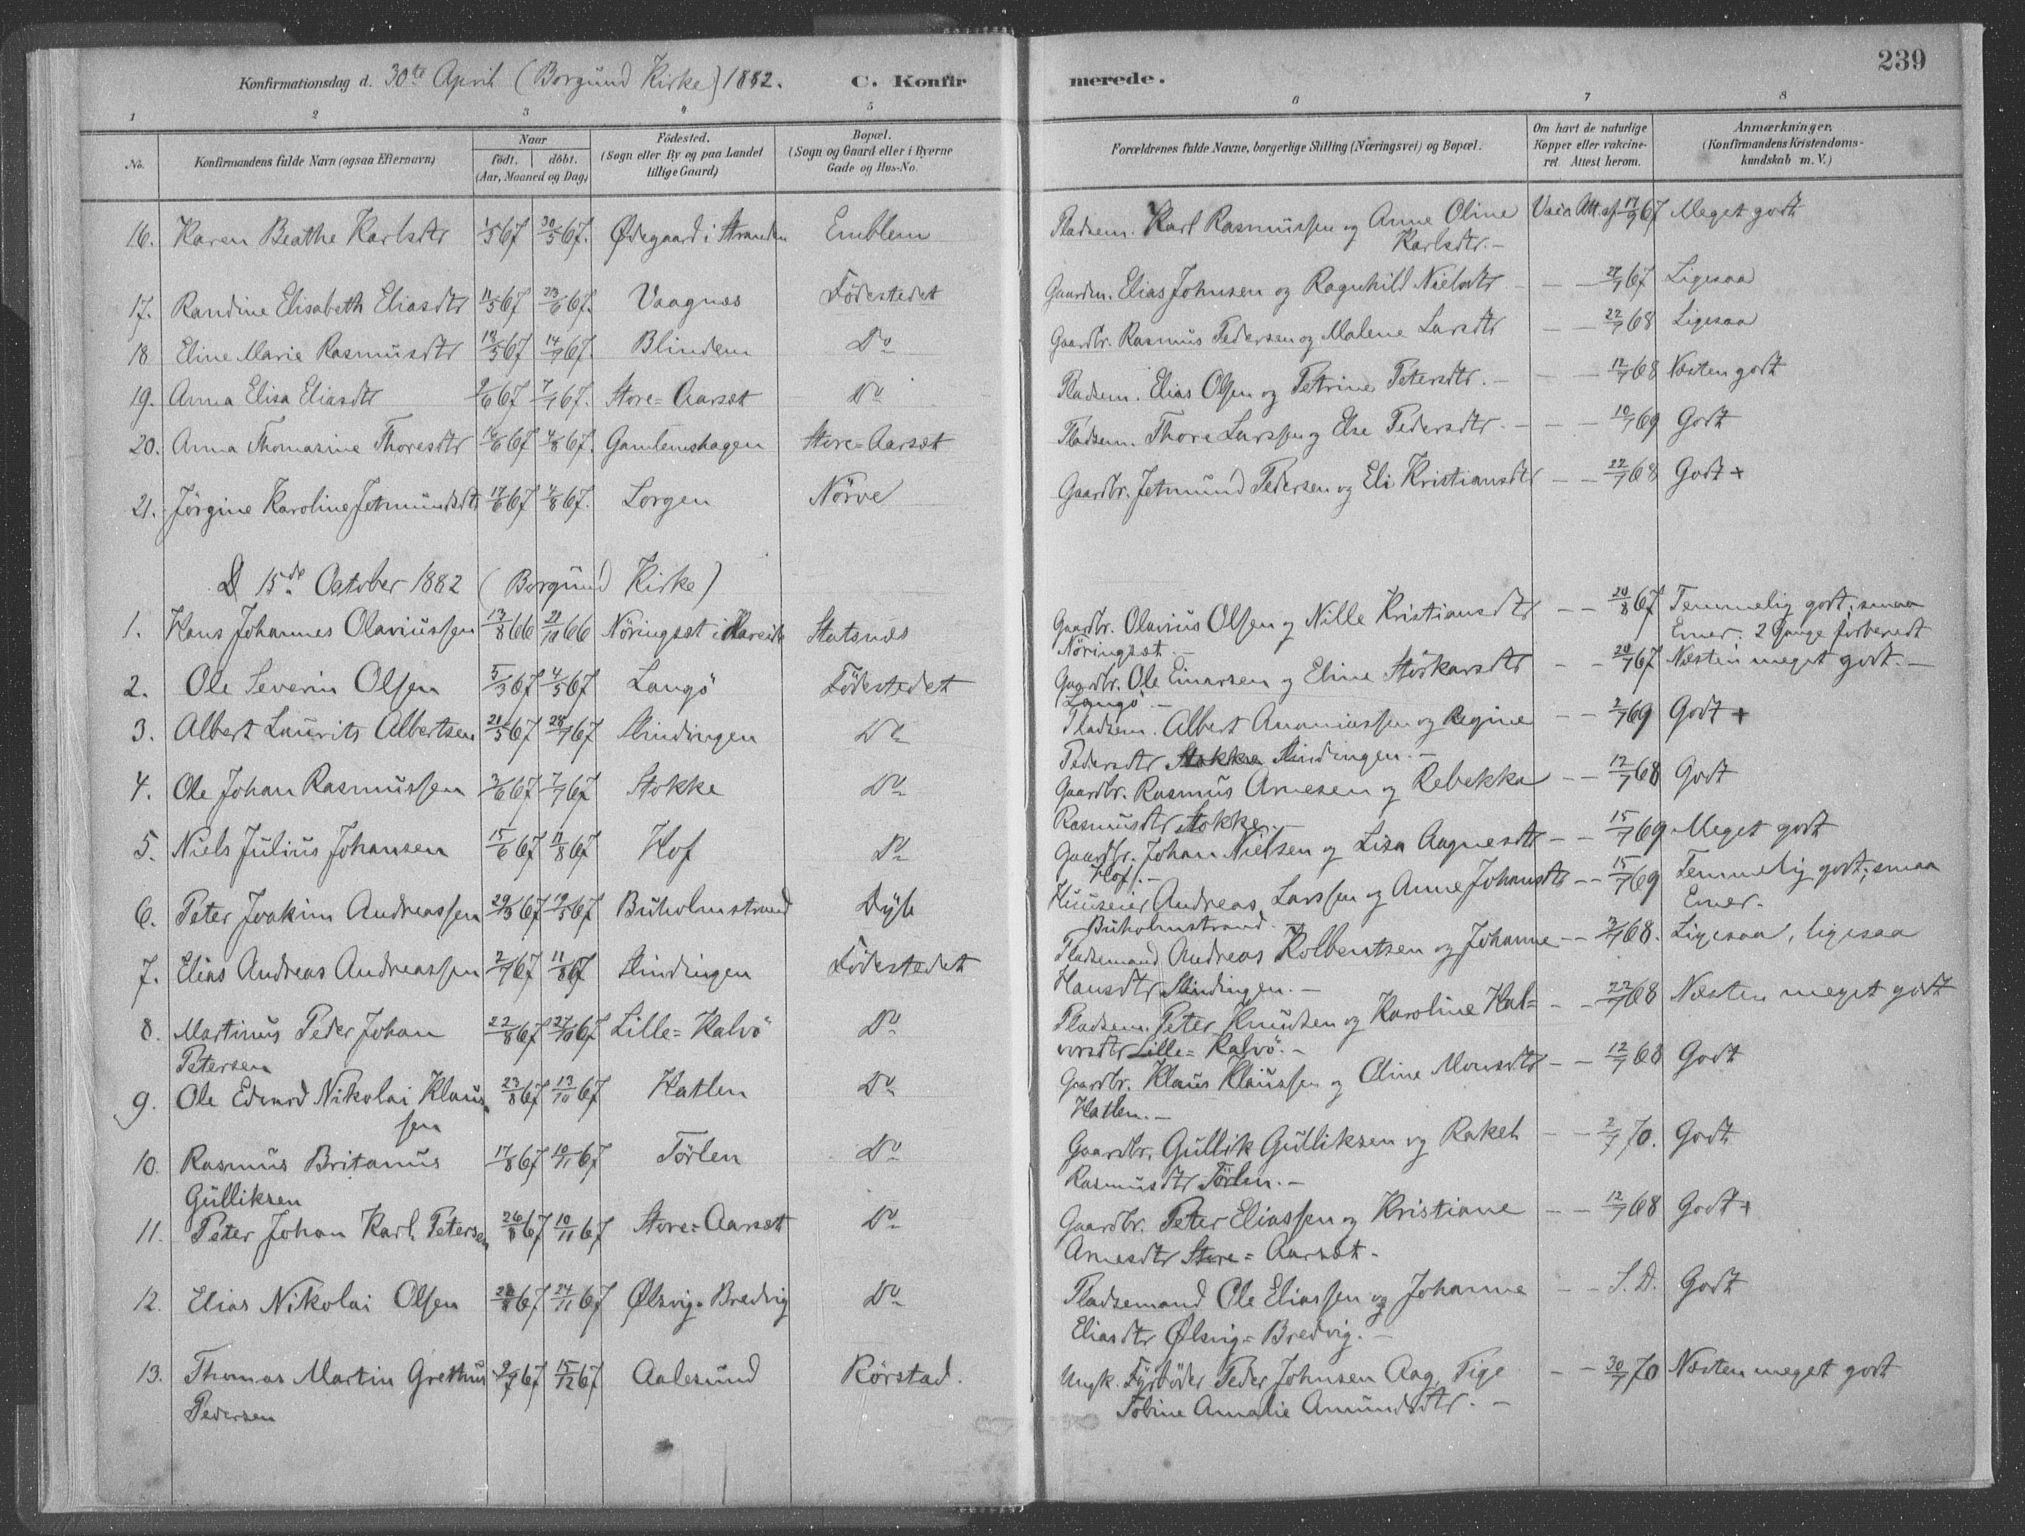 239
Konfirmationsdag d. 30te April (Borgund Kirke) 1882. C. Konfirmerede.
1 2 3 4 5 6 7 8
No. Konfirmandens fulde Navn (ogsaa Efternavn) Naar født. døbt. (Aar, Maaned og Dag) Fødested. (Sogn eller By og paa Landet tillige Gaard) Bopæl. (Sogn og Gaard eller i Byerne Gade og Hus-No. Forældrenes fulde Navne, borgerlige Stilling (Næringsvei) og Bopæl. Om havt de naturlige Kopper eller vakcineret. Attest herom. Anmærkninger. (Konfirmandens Kristendomskundskab m. V.)
16. Karen Beathe Karlsdtr 1/5 67 30/5 67. Ødegaard i Stranden Emblem Pladsem. Karl Rasmussen og Anne Oline Vacc. Att. af 17/9 67 Meget godt
Karlsdtr. -
17. Randine Elisabeth Eliasdtr 11/5 67 23/6 67. Vaagnæs Födestedet Gaardm. Elias Johnsen og Ragnhild Nielsdtr - - - 67 Ligesaa
18 Eline Marie Rasmusdtr 13/5 67 14/7 67. Blindem Do Gaardbr. Rasmus Pedersen og Malene Larsdtr - - 22/7 68 Ligesaa
19. Anna Elisa Eliasdtr 67 7/7 67. Store=Aarsæt Do Pladsem. Elias Olsen og Petrine Petersdtr. - - - 12/7 68 Næsten godt
20. Anna Thomasine Thoresdtr 67 4/8 67. Gamlemshagen Store=Aarsæt Pladsem. Thore Larssen og Else Pedersdtr. - - - 10/7 69 Godt
21. Jörgine Karoline Jetmundsdtr 67 67. Lorgen Nörve Gaardbr. Jetmund Pedersen og Eli Kristiansdtr - - 22/7 68 Godt +
D 15de October 1882 (Borgund Kirke)
1. Hans Johannes Olaviussen 13/8 66 21/10 66 Nöringsæt i Hareide Slatsnæs Gaardbr. Olavius Olsen og Nille Kristiansdtr - - 20/8 67 Temmelig godt; smaa
Nöringsæt. - Evner. 2 Gange forberedt
2. Ole Severin Olsen 5/3 67 4/5 67 Langö Födestedet Gaardbr. Ole Einarsen og Eline Störkarsdtr - - 67 Næsten meget godt. -
Langö. -
3. Albert Laurits Albertsen 21/5 67 28/7 67 Slindingen Do Pladsem. Albert Ananiassen og Regine - - 2/7 69 Godt +
Pedersdtr Stokke Slindingen. -
4. Ole Johan Rasmussen 67 7/7 67 Stokke Do Gaardbr. Rasmus Arnesen og Rebekka - - 12/7 68 Godt
Rasmusdtr Stokke. -
5. Niels Julius Johansen 15/6 67 11/8 67 Hof Do Gaardbr. Johan Nielsen og Lisa Aagnesdtr - - 15/7 69 Meget godt
Hof. -
6. Peter Joakim Andreassen 29/3 67 19/5 67 Buholmstrand Dyb Huuseier Andreas Larssen og Anne Johansdtr - - 15/7 69 Temmelig godt; smaa
Buholmstrand. Evner.
7. Elias Andreas Andreassen 2/7 67 11/8 67 Slindingen Födestedet Pladsemand Andreas Kolbentsen og Johanne - - 68. Ligesaa, ligesaa
Hansdtr Slindingen. -
8. Martinus Peder Johan 22/8 67 27/10 67 Lille=Kalvö Do Pladsem. Peter Knudsen og Karoline Hal= - - 22/7 68 Næsten meget godt
Petersen vorsdtr Lille=Kalvö. -
9. Ole Edvard Nikolai Klaus- 23/8 67 13/10 67 Hatlen Do Gaardbr. Klaus Klaussen og Oline Monsdtr - - 12/7 68 Godt
sen Hatlen. -
10. Rasmus Britanus 17/8 67 10/11 67 Törlen Do Gaardbr. Gullik Gulliksen og Rakel - - 2/7 70. Godt
Gulliksen Rasmusdtr Törlen. -
11. Peter Johan Karl Petersen 26/8 67 10/11 67 Store=Aarsæt Do Gaardbr. Peter Eliassen og Kristiane - - 12/7 68 Godt +
Arnesdtr Store=Aarsæt -
12. Elias Nikolai Olsen 67 24/11 67 Ølsvig=Bredvig Do Pladsemand Ole Eliassen og Johanne - - S.D. Godt
Eliasdtr Ølsvig=Bredvig. -
13. Thomas Martin Grethus 9/7 67 15/12 67 Aalesund Rörstad. Ungk. Fyrböder Peder Johnsen Aag, Pige - - 30/7 70 Næsten meget godt
Pedersen Tobine Amalie Amundsdtr. -